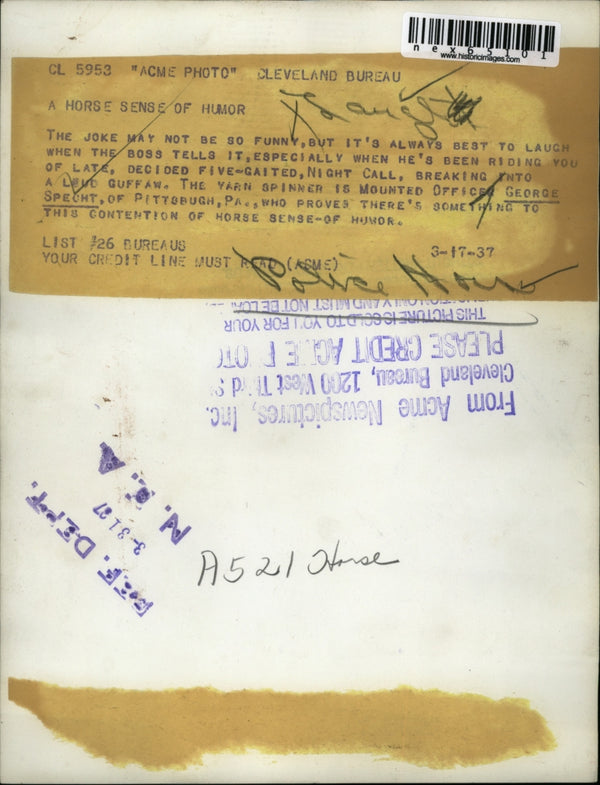 nex65101
www.historicimages.com
CL 5953 "ACME PHOTO" CLEVELAND BUREAU
A HORSE SENSE OF HUMOR
THE JOKE MAY NOT BE SO FUNNY, BUT IT'S ALWAYS BEST TO LAUGH
WHEN THE BOSS TELLS IT, ESPECIALLY WHEN HE'S BEEN RIDING YOU
OF LATE, DECIDED FIVE-GAITED, NIGHT CALL, BREAKING INTO
A LOUD GUFFAW. THE YARN SPINNER IS MOUNTED OFFICER GEORGE
SPECHT, OF PITTSBUGH, PA., WHO PROVES THERE'S SOMETHING TO
THIS CONTENTION OF HORSE SENSE-OF HUMOR.
LIST #26 BUREAUS 3-17-37
YOUR CREDIT LINE MUST READ (ACME)
Police Horse
THIS PICTURE IS SOLD TO YOU FOR YOUR
PLEASE CREDIT ACME PHOTO
Cleveland Bureau, 1200 West Third
From Acme Newspictures, Inc.
REF. DEPT.
3-31-37
N. E. A.
A521 Horse